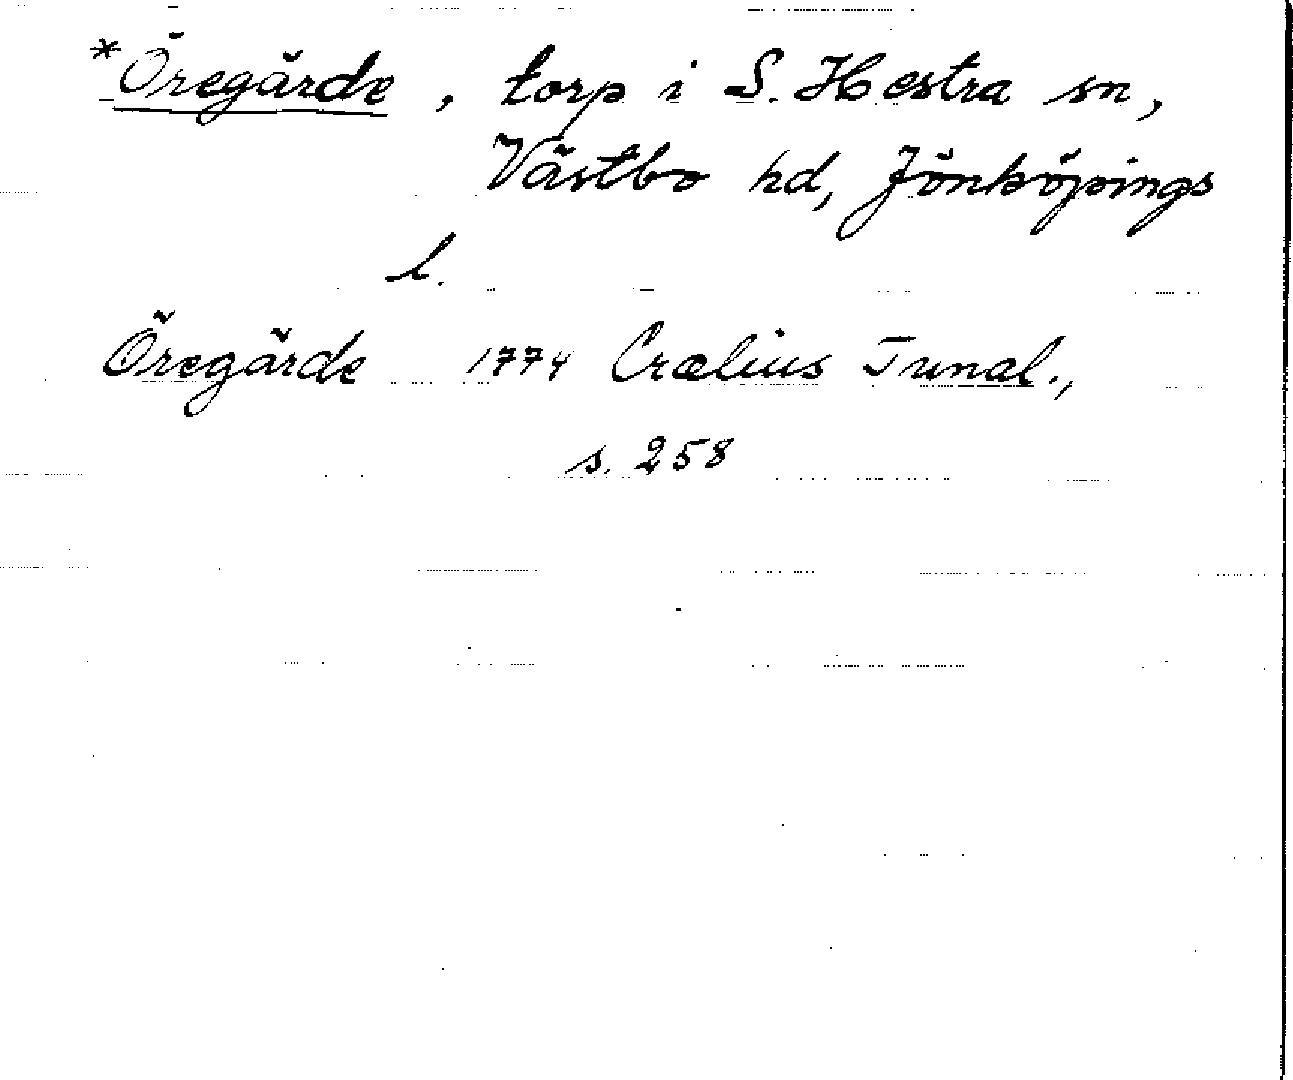 *Öregärde, torp i S. Hestra sn,
Västbo hd, Jönköpings
l.
Öregärde 1774 Crælius Tunal.,
s. 258